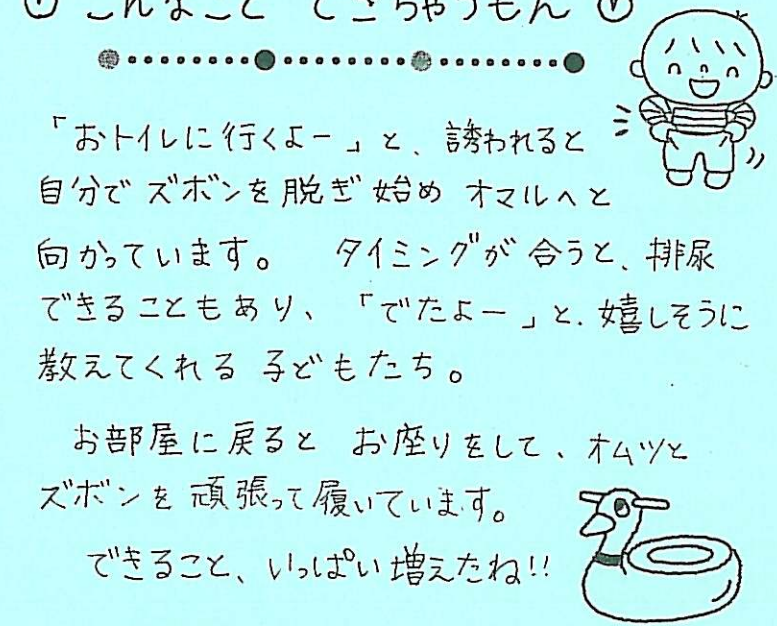 こんなこと できちゃうもん
「おトイレに行くよー」と、誘われると
自分で ズボンを脱ぎ始め オマルへと
向かっています。 タイミングが合うと、排尿
できることもあり、「でたよー」と、嬉しそうに
教えてくれる 子どもたち。
お部屋に戻ると お座りをして、オムツと
ズボンを 頑張って履いています。
できること、いっぱい増えたね!!